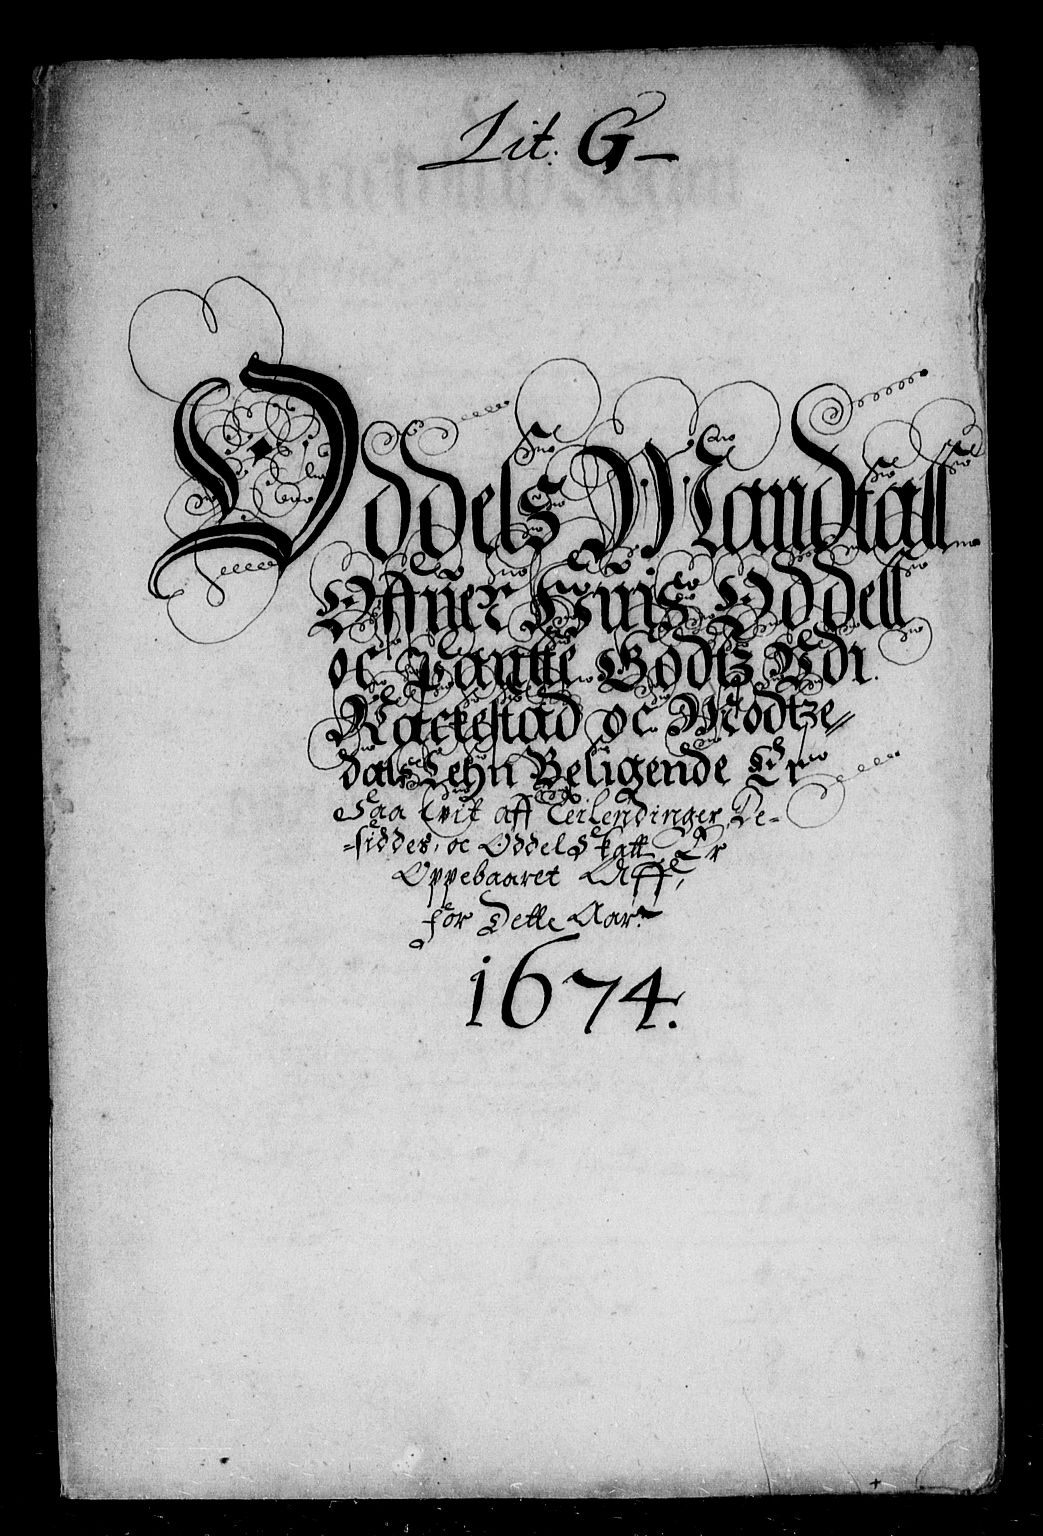 Lit: G
Oddels Mandtall
Offuer Huis Oddell
oc Pantte Godtz Udi
Rackestad oc Modtze=
dals Lehn Beligende Er
Saa wit aff Teilendinger Be-
-siddes, oc Oddel Skatt Er
Oppebaaret Aff,
for Dette Aar.
1674.